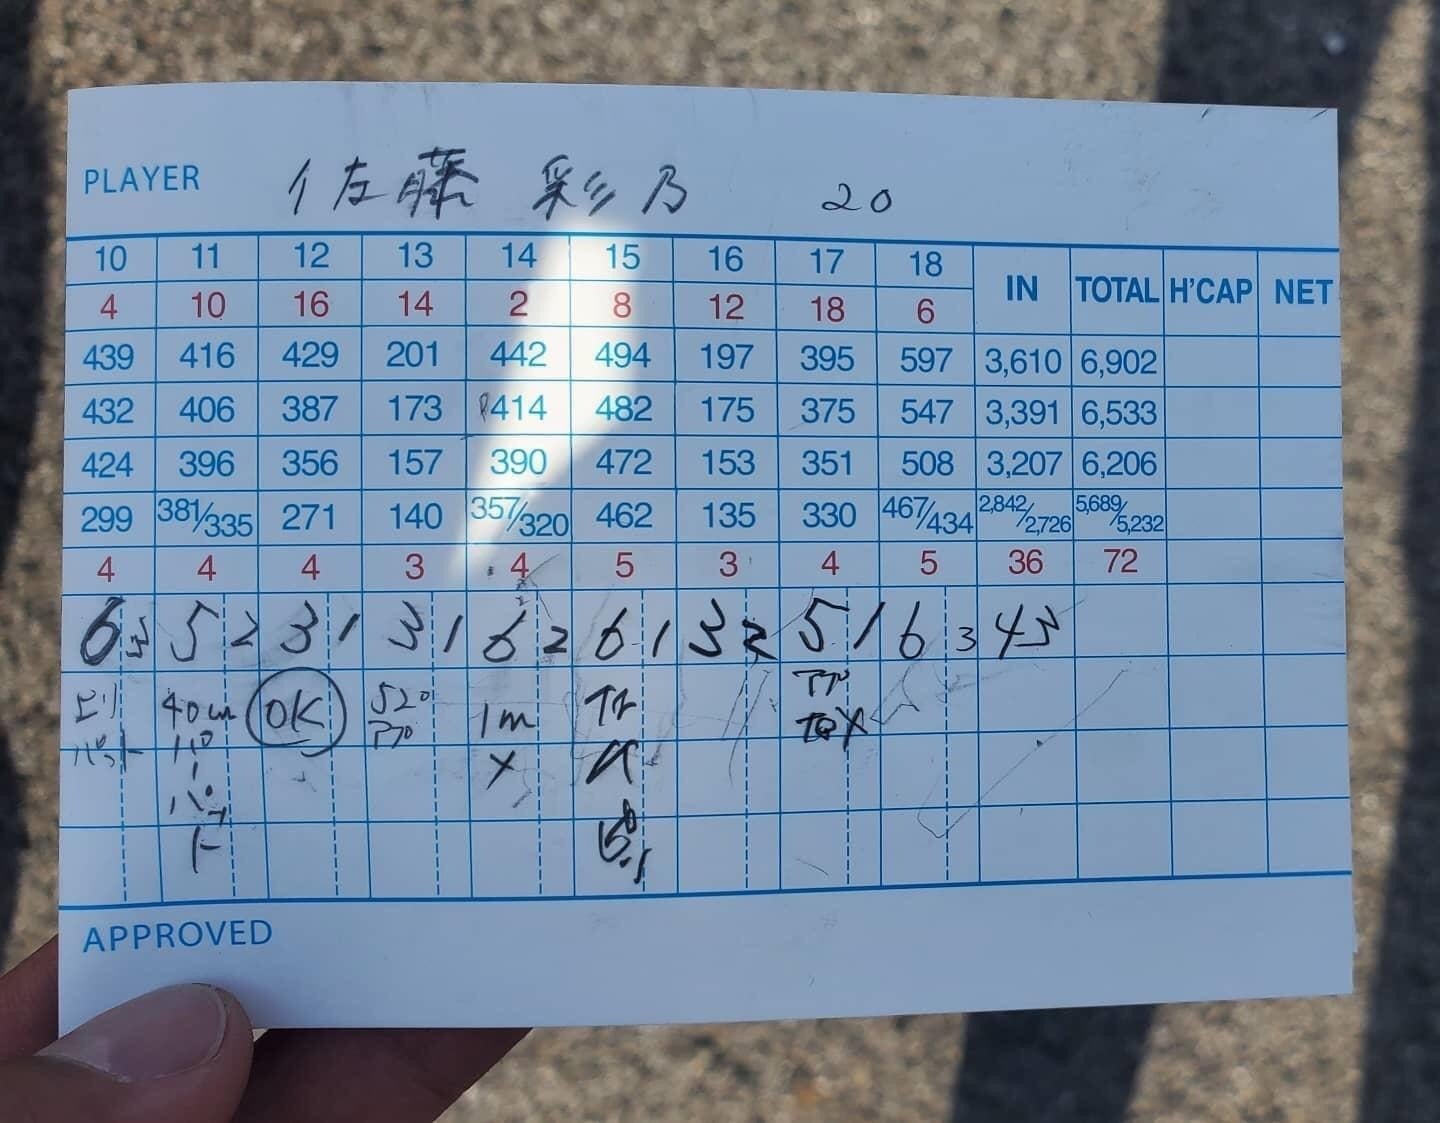 PLAYER 佐藤 彩乃 20
10 11 12 13 14 15 16 17 18 IN TOTAL H'CAP NET
4 10 16 14 2 8 12 18 6
439 416 429 201 442 494 197 395 597 3,610 6,902
432 406 387 173 414 482 175 375 547 3,391 6,533
424 396 356 157 390 472 153 351 508 3,207 6,206
299 381/335 271 140 357/320 462 135 330 467/434 2,842/2,726 5,689/5,232
4 4 4 3 4 5 3 4 5 36 72
6 3 5 2 3 1 3 1 6 2 6 1 3 2 5 1 6 3 43
40cm OK 520 1m
パット パー X
パット
APPROVED